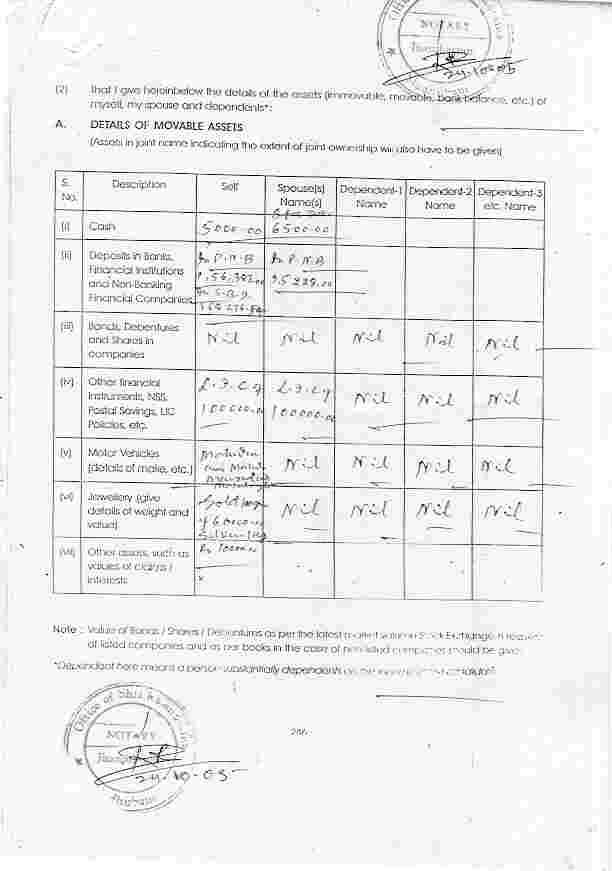 NOTARY
24-10-05
(2) that I give hereinbelow the details of the assets (immovable, movable, bank balance, etc.) of
myself, my spouse and dependents*:
A. DETAILS OF MOVABLE ASSETS
(Assets in joint name indicating the extent of joint ownership will also have to be given)
S. No. Description Self Spouse(s) Name(s) Dependent-1 Name Dependent-2 Name Dependent-3 etc. Name
(i) Cash 5000.00 6500.00
(ii) Deposits in Banks, In P.N.B In P.N.B
Financial Institutions
and Non-Banking
Financial Companies
(iii) Bonds, Debentures Nil Nil Nil Nil Nil
and Shares in
companies
(iv) Other financial
instruments, NSS, Nil Nil Nil
Postal Savings, LIC 100000.00 100000.00
Policies, etc.
(v) Motor Vehicles Nil Nil Nil Nil
(details of make, etc.)
(vi) Jewellery (give Gold
details of weight and Nil Nil Nil Nil
value)
(vii) Other assets, such as
values of claims /
interests
Note : Value of Bonds / Shares / Debentures as per the latest market value in Stock Exchange in respect
of listed companies and as per books in the case of non-listed companies should be given
*Dependent here means a person substantially dependents on the income of the candidate.
Office of
NOTARY
24-10-05